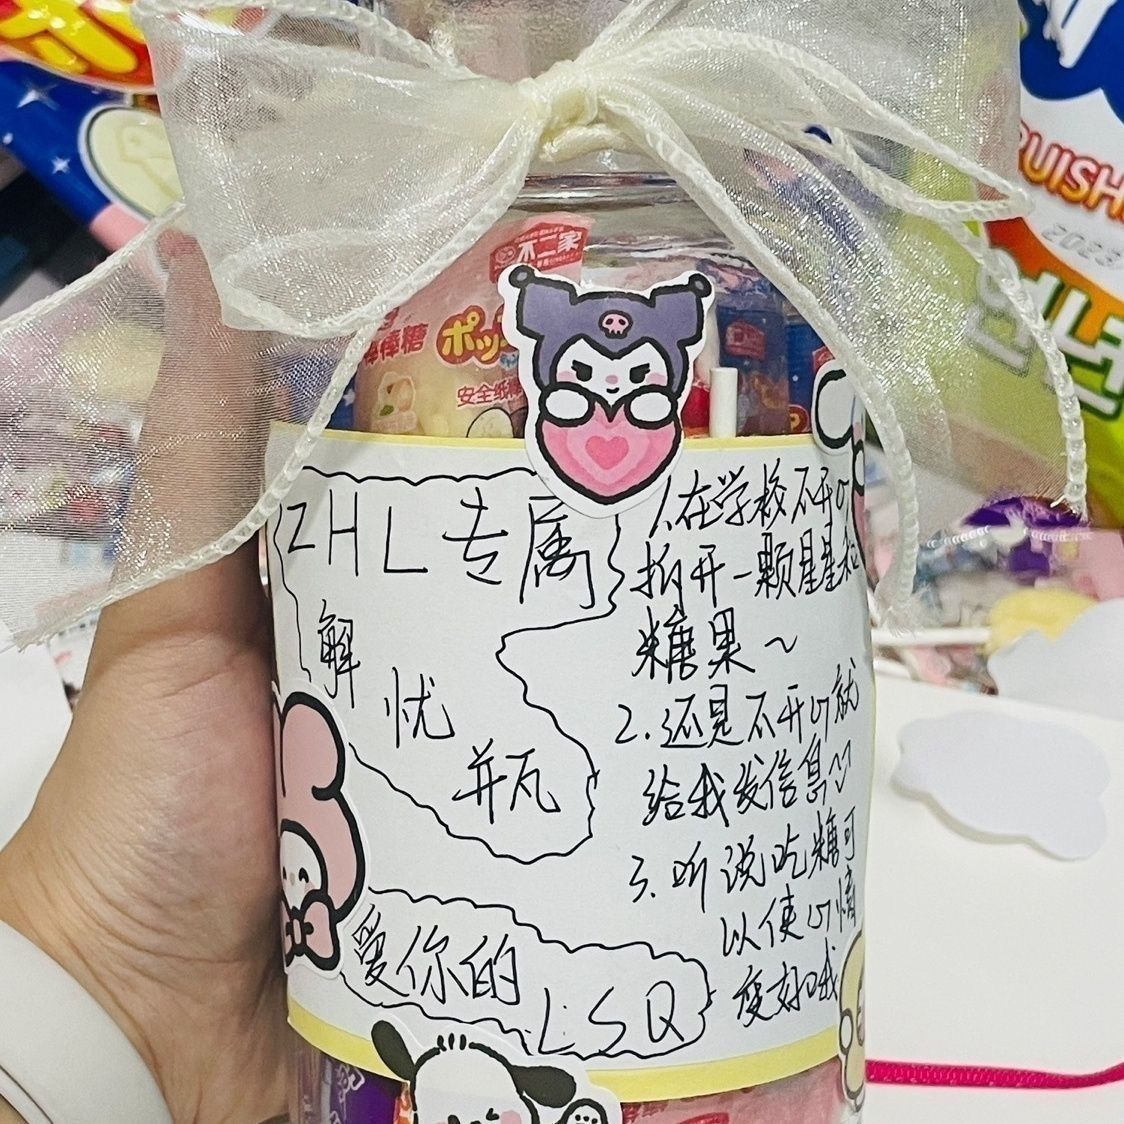 不二家
棒棒糖
ポッ
安全纸棒
RUISH
2023
ZHL专属
解
忧
瓶
爱你的
LSQ
1.在学校不开心
拆开一颗星星和
糖果~
2.还是不开心就
给我发信息
3.听说吃糖可
以使心情
变好哦